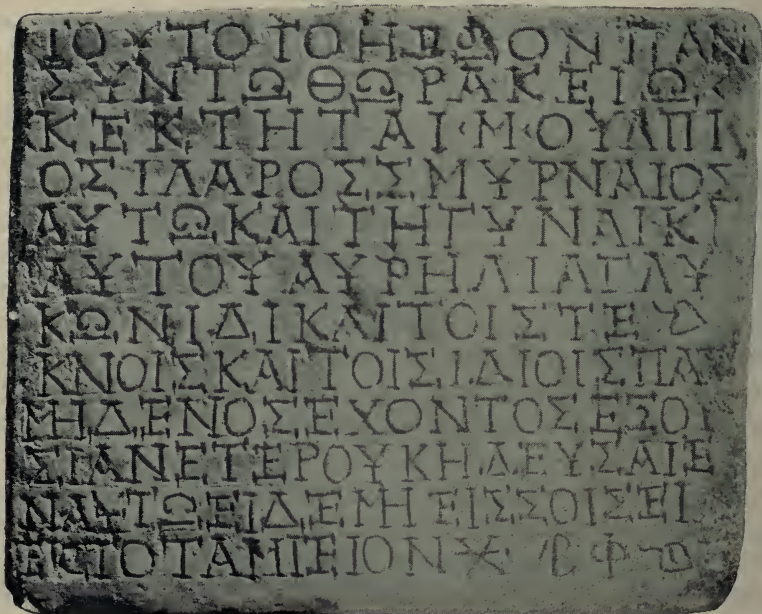 ΤΟΥΤΟΤΟΗΡΩΟΝΠΑΝ
ΣΥΝΤΩΘΩΡΑΚΕΙΩ
ΚΕΚΤΗΤΑΙ·Μ·ΟΥΛΠΙ
ΟΣΙΛΑΡΟΣΣΜΥΡΝΑΙΟΣ
ΑΥΤΩΚΑΙΤΗΓΥΝΑΙΚΙ
ΑΥΤΟΥΑΥΡΗΛΙΑΓΛΥ
ΚΩΝΙΔΙΚΑΙΤΟΙΣΤΕ
ΚΝΟΙΣΚΑΙΤΟΙΣΙΔΙΟΙΣΠΑ
ΜΗΔΕΝΟΣΕΧΟΝΤΟΣΕΞΟΥ
ΣΙΑΝΕΤΕΡΟΥΚΗΔΕΥΣΑΙΕ
ΝΑΥΤΩΕΙΔΕΜΗΕΙΣΣΟΙΣΕΙ
ΕΣΤΟΤΑΜΙΕΙΟΝ Ӿ ͵ΒΦ